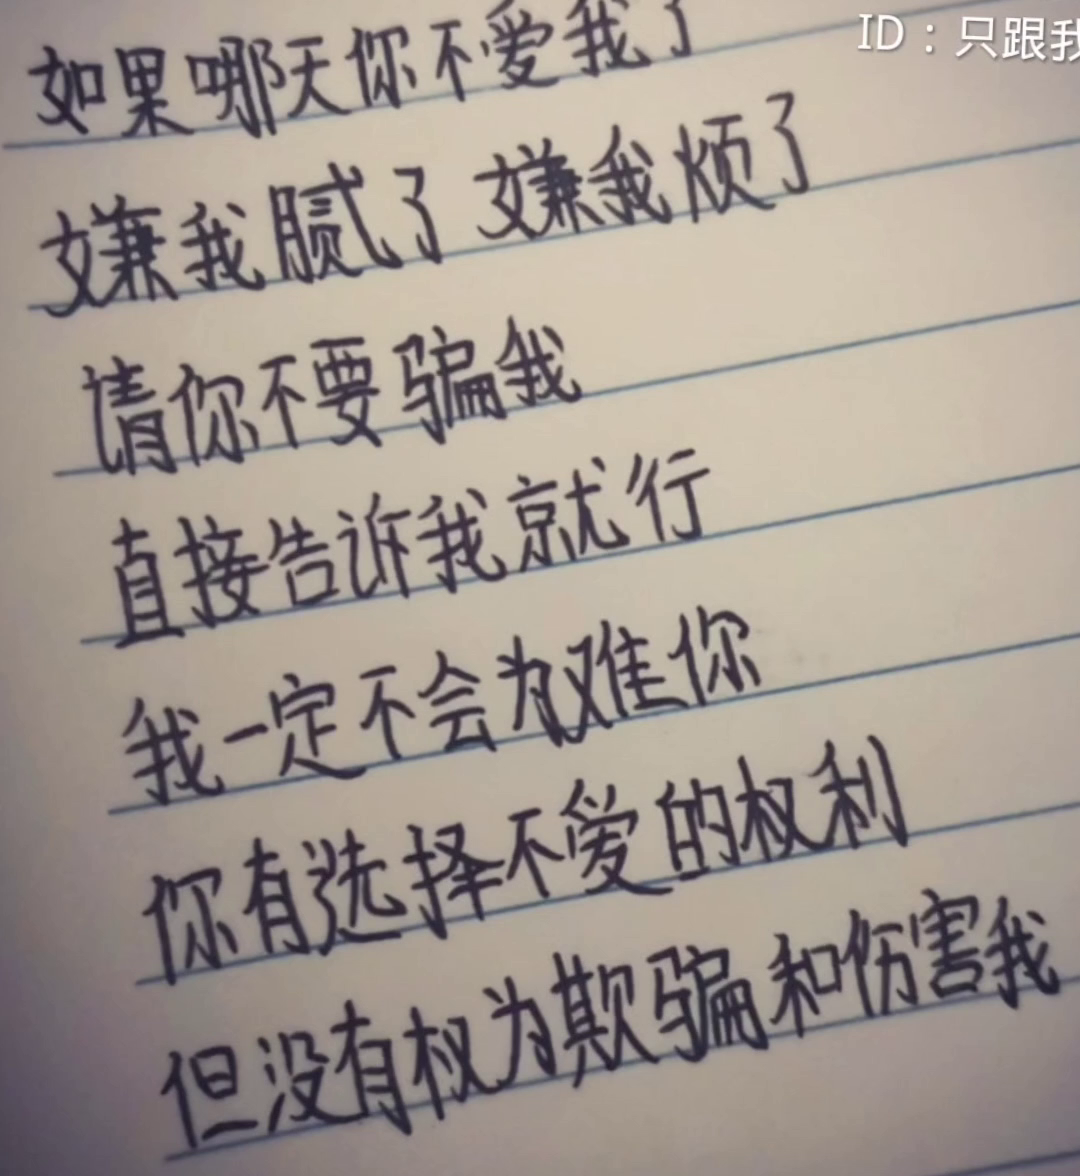 ID：只跟我
如果哪天你不爱我了
嫌我腻了 嫌我烦了
请你不要骗我
直接告诉我就行
我一定不会为难你
你有选择不爱的权利
但没有权为欺骗和伤害我